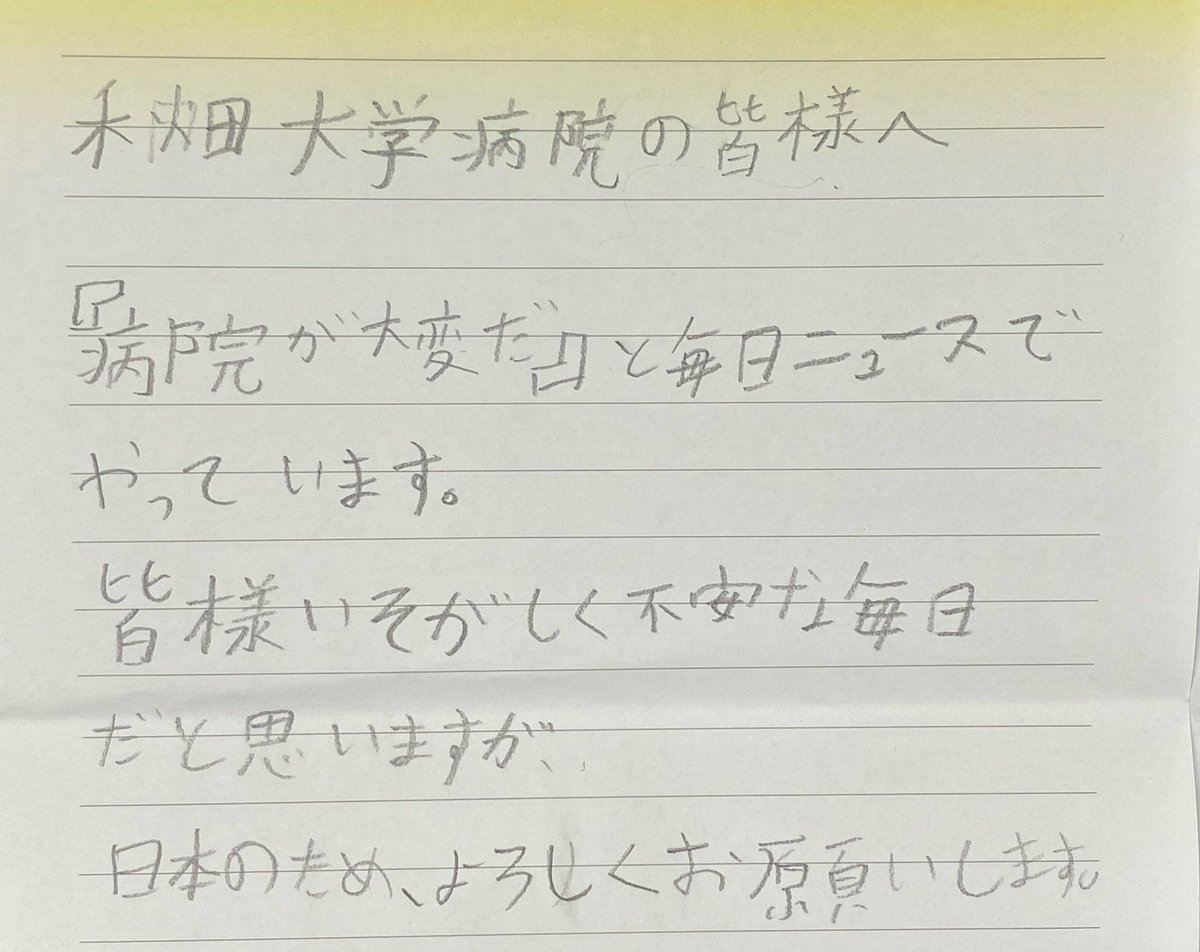 禾畑大学病院の皆様へ
『病院が大変だ』と毎日ニュースで
やっています。
皆様いそがしく不安な毎日
だと思いますが、
日本のため、よろしくお願いします。